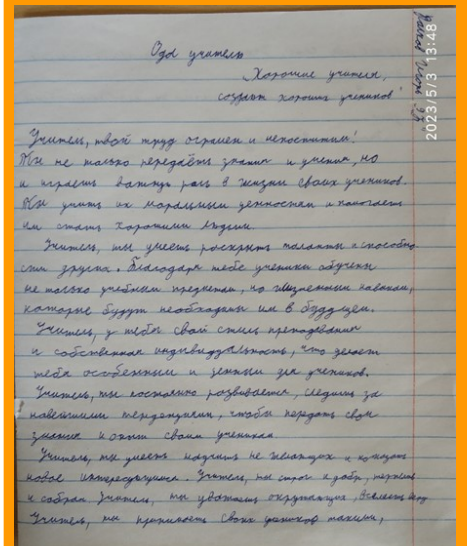 Ода учителю
"Хорошие учителя,
создают хороших учеников"
Учитель, твой труд огромен и непостижим!
Ты не только передаёшь знания и умения, но
и играешь важную роль в жизни своих учеников.
Ты учишь их моральным ценностям и помогаешь
им стать хорошими людьми.
Учитель, ты умеешь раскрыть таланты и способно
сти других. Благодаря тебе ученики обучены
не только учебным предметам, но жизненным навыкам,
которые будут необходимы им в будущем.
Учитель, у тебя свой стиль преподавания
и собственная индивидуальность, что делает
тебя особенным и ценным для учеников.
Учитель, ты постоянно развиваешься, следишь за
новейшими тенденциями, чтобы передать свои
знания и опыт своим ученикам
Учитель, ты умеешь научить не желающих и
новое интересующимся. Учитель, ты строг и добр,
и собран Учитель, ты уважаешь окружающих, вселяешь веру
Учитель, ты принимаешь своих учеников такими,
2023/5/3 13:48